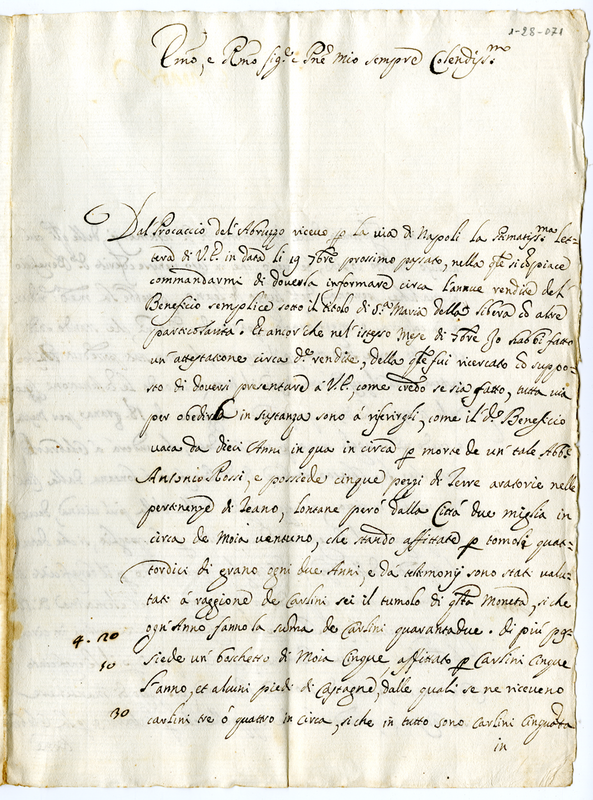 1-28-071
Emo, e Rmo Sigr. e Pne mio sempre Colendissmo
Dal Procaccio del'Abruzzo ricevo p la via di Napoli la Stimatissma Let=
tera di V.E. in data li 19 9bre prossimo passato, nella qle si compiace
commandarmi di doverla informare circa l'annue rendite del
Beneficio semplice sotto il titolo di S.ta Maria della libera ed altre
particolarità. Et ancor che nel'istesso Mese di 9bre Io habbi fatto
un'attestatione circa de rendite, della qle fui ricercato ed suppo=
sto di doversi presentare a V.E., come credo se sia fatto, tutta via
per obedirla in sustanza sono à riferirgli, come il do Beneficio
vaca da dieci Anni in qua in circa p morte de un tale Abbe
Antonio Rossi, e possiede cinque pezzi di Terre aratorie nelle
pertinenze di Teano, lontane però dalla Città due miglia in
circa de Moia ventuno, che stando affittate p tomoli quat=
tordici di grano ogni due Anni, e da testimonij sono stati valu=
tati à raggione de Carlini sei il tumolo di qsta Moneta, si che
ogn'Anno fanno la summa de Carlini quarantadue. di più pos=
4. 20
siede un boschetto di Moia Cinque affittato p Carlini Cinque
50
l'anno, et alcuni piedi di Castagne, dalle quali se ne riceveno
30
carlini tre ò quattro in circa, si che in tutto sono Carlini Cinquanta
in